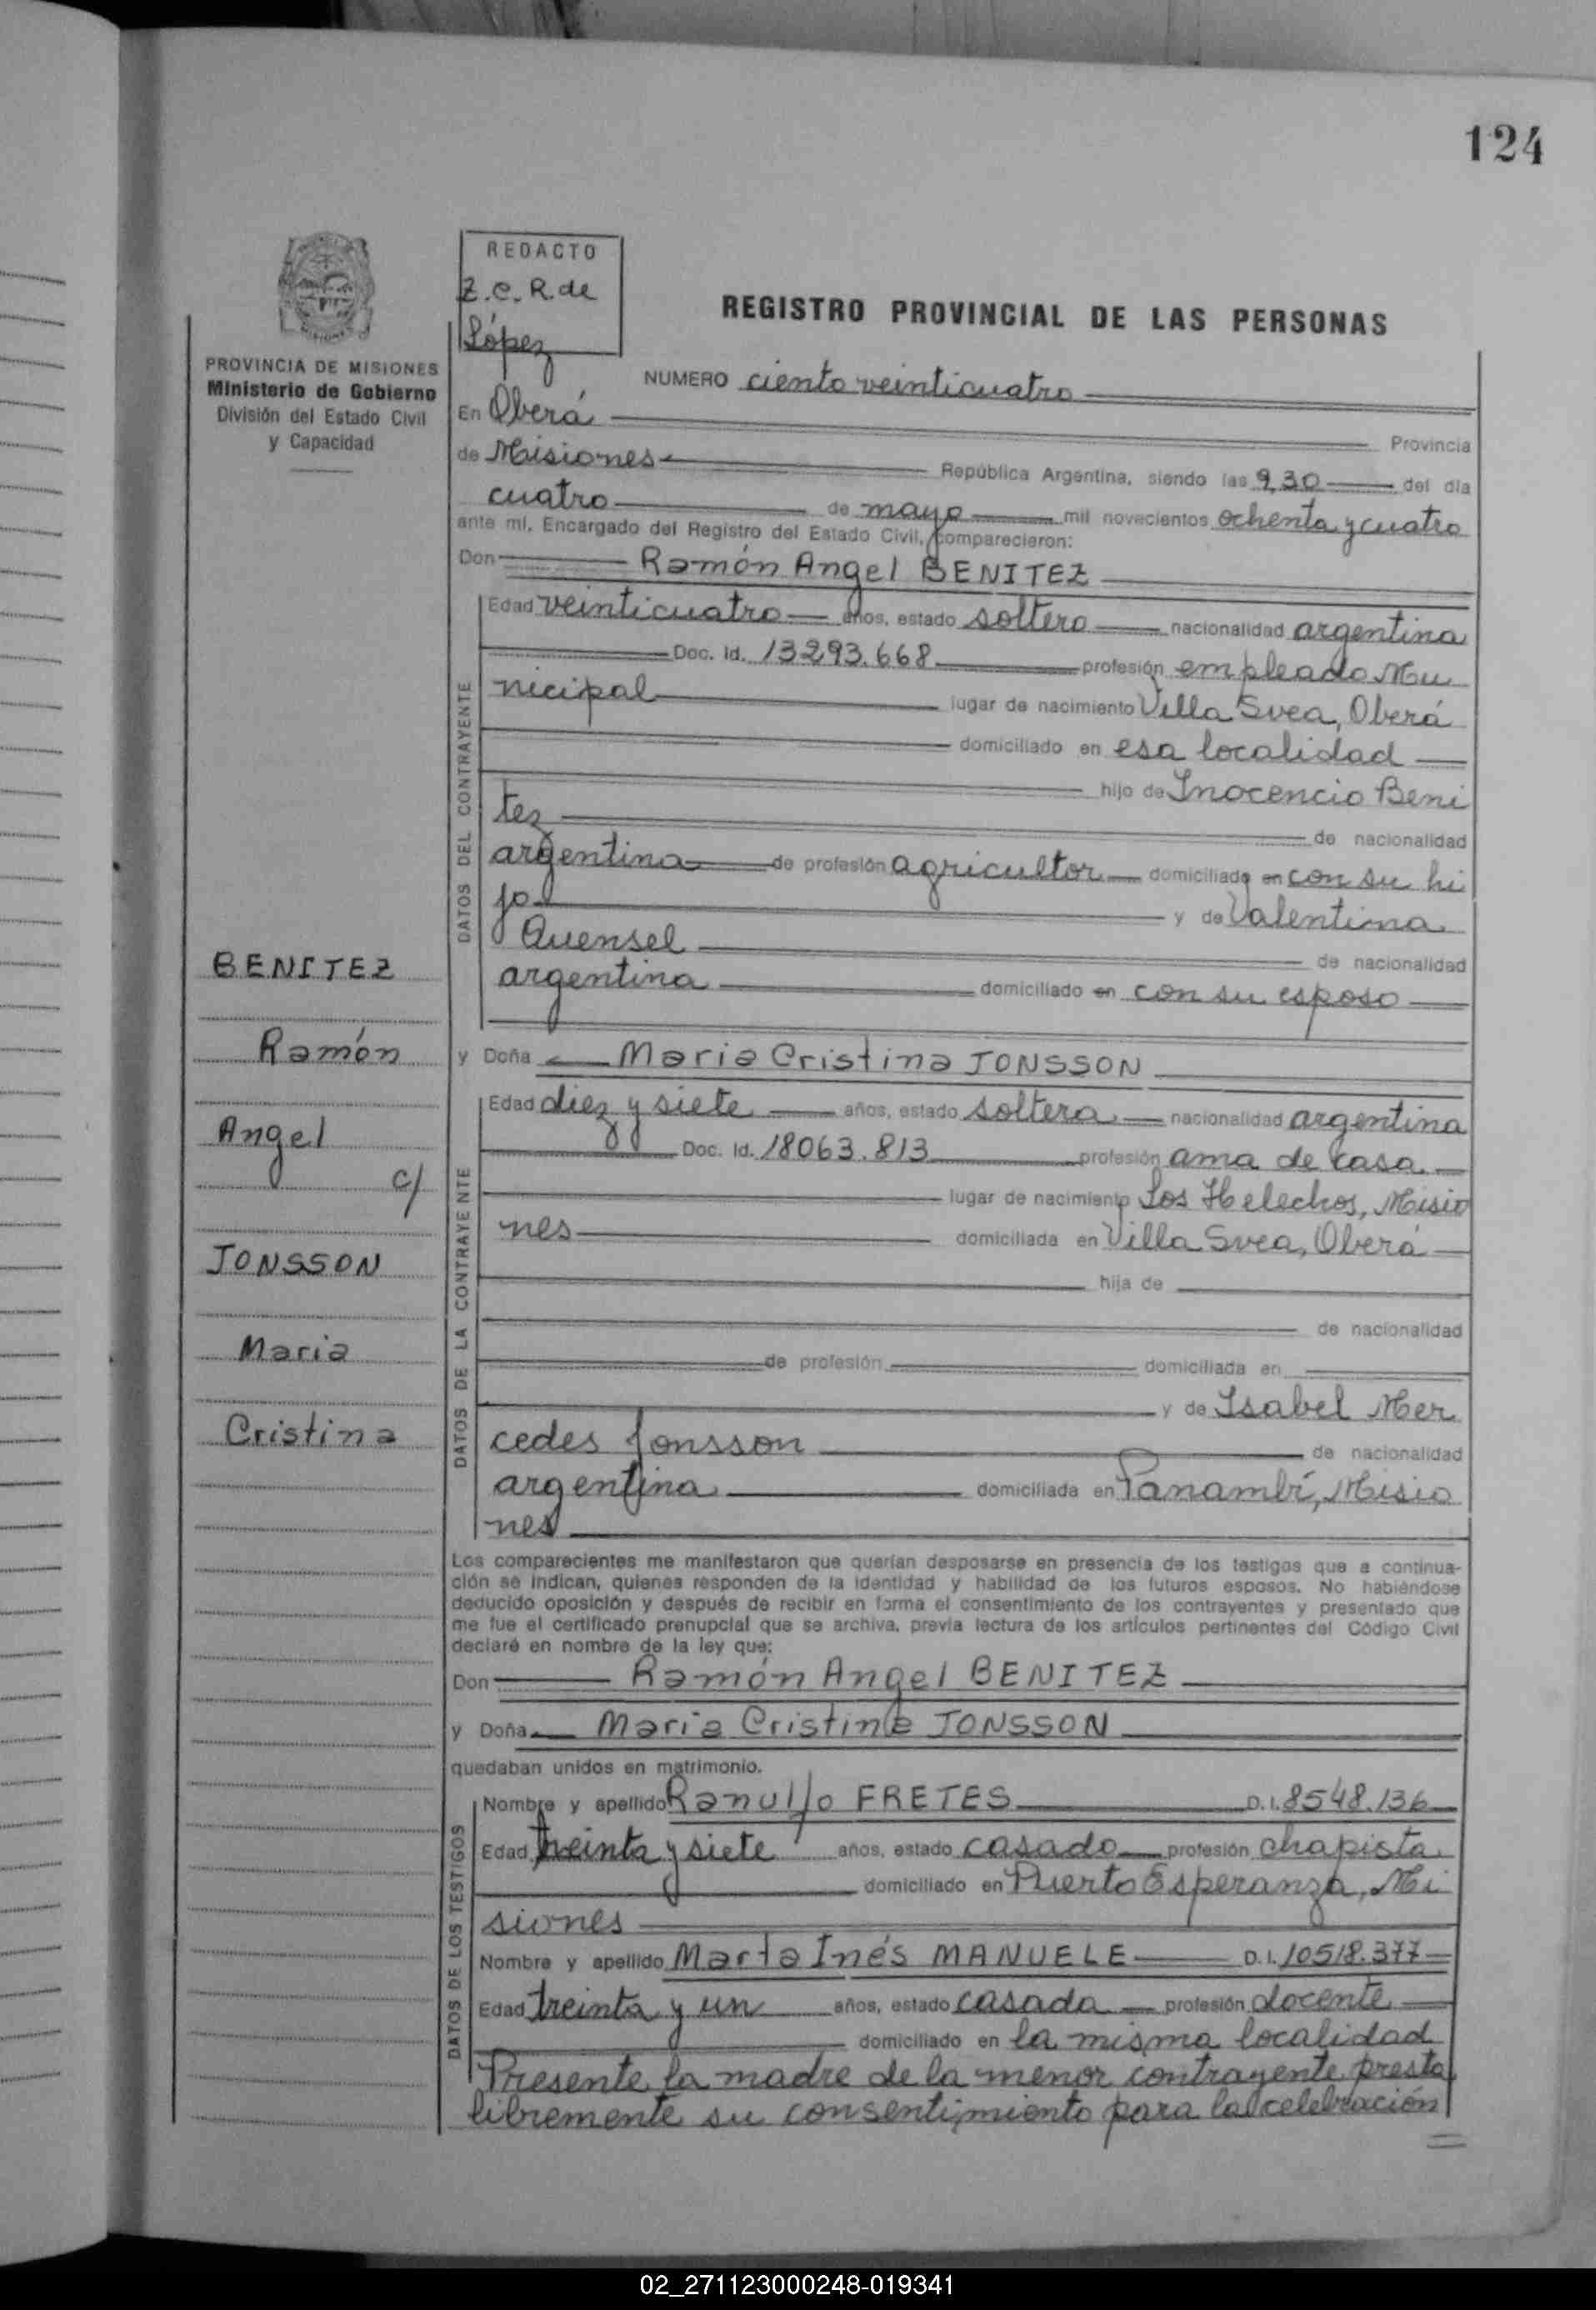 124
REDACTO
Z. C. R. de
López
REGISTRO PROVINCIAL DE LAS PERSONAS
PROVINCIA DE MISIONES
Ministerio de Gobierno
División del Estado Civil
y Capacidad
NUMERO ciento veinticuatro
En Oberá
Provincia
de Misiones República Argentina, siendo las 9,30 del día
cuatro de mayo mil novecientos ochenta y cuatro
ante mí, Encargado del Registro del Estado Civil, comparecieron:
Don Ramón Angel BENITEZ
DATOS DEL CONTRAYENTE
Edad veinticuatro años, estado soltero nacionalidad argentina
Doc. Id. 13293.668 profesión empleado Mu
nicipal lugar de nacimiento Villa Svea, Oberá
domiciliado en esa localidad
hijo de Inocencio Beni
tez de nacionalidad
argentina de profesión agricultor domiciliado en con su hi
jo y de Valentina
Quensel de nacionalidad
argentina domiciliado en con su esposo
y Doña Maria Cristina JONSSON
DATOS DE LA CONTRAYENTE
Edad diez y siete años, estado soltera nacionalidad argentina
Doc. Id. 18063.813 profesión ama de casa
lugar de nacimiento Los Helechos, Misio
nes domiciliada en Villa Svea, Oberá
hija de
de nacionalidad
de profesión domiciliada en
y de Isabel Mer
cedes Jonsson de nacionalidad
argentina domiciliada en Panambí, Misio
nes
Los comparecientes me manifestaron que querían desposarse en presencia de los testigos que a continua-
ción se indican, quienes responden de la identidad y habilidad de los futuros esposos. No habiéndose
deducido oposición y después de recibir en forma el consentimiento de los contrayentes y presentado que
me fue el certificado prenupcial que se archiva, previa lectura de los artículos pertinentes del Código Civil
declaré en nombre de la ley que:
Don Ramón Angel BENITEZ
y Doña Maria Cristina JONSSON
quedaban unidos en matrimonio.
DATOS DE LOS TESTIGOS
Nombre y apellido Ranulfo FRETES D.I. 8548.136
Edad treinta y siete años, estado casado profesión chapista
domiciliado en Puerto Esperanza, Mi
siones
Nombre y apellido Marta Inés MANUELE D.I. 10518.377
Edad treinta y un años, estado casada profesión docente
domiciliado en la misma localidad
Presente la madre de la menor contrayente presta
libremente su consentimiento para la celebración
BENITEZ
Ramón
Angel
c/
JONSSON
Maria
Cristina
02_271123000248-019341